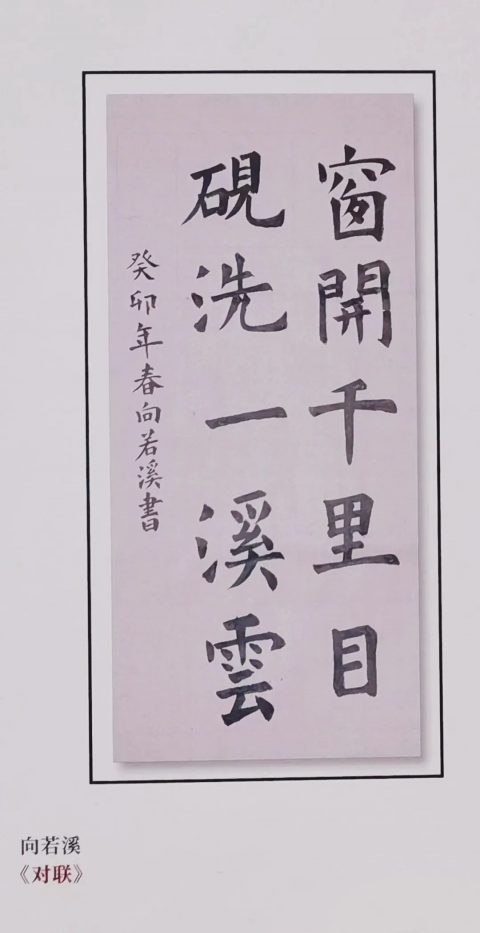 窗開千里目
硯洗一溪雲
癸卯年春向若溪書
向若溪
《对联》